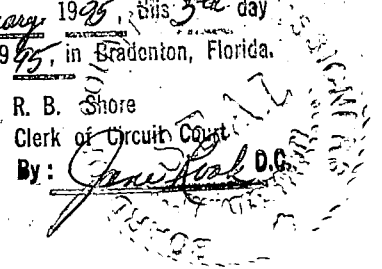 1995, this 3rd day
1995, in Bradenton, Florida.
R. B. Shore
Clerk of Circuit Court
By: Jane Rook D.C.